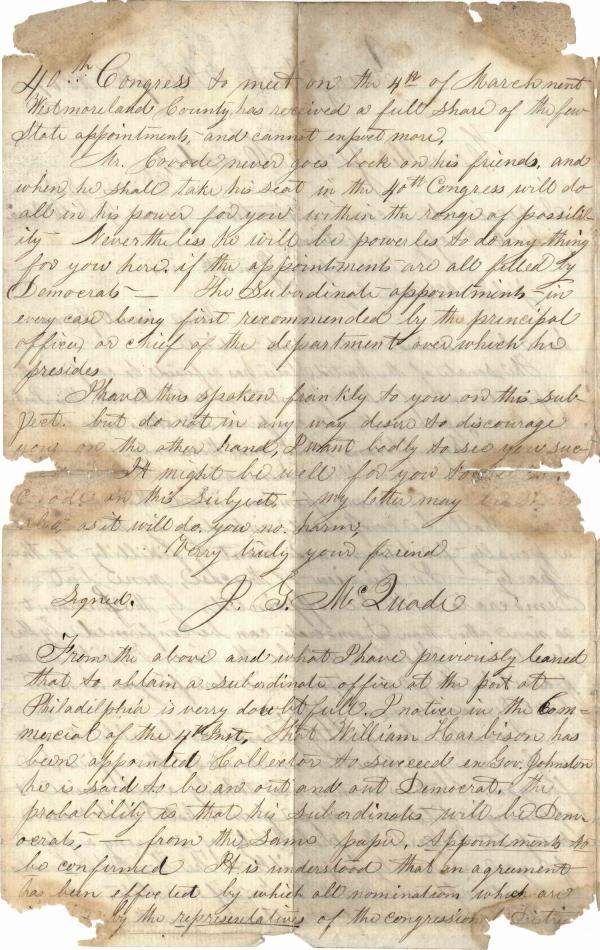 40th Congress to meet on the 4th of March next
Westmoreland County, has received a full share of the few
State appointments, and cannot expect more,
Mr. Covode never goes back on his friends, and
when, he shall take his seat in the 40th Congress will do
all in his power for you within the range of possibil-
ity Nevertheless he will be powerless to do any thing
for you here, if the appointments are all filled by
Democrats — The Subordinate appointments in
every case being first recommended by the principal
officer, or chief of the department over which he
presides
I have thus spoken frankly to you on this sub-
ject. but do not in any way desire to discourage
you on the other hand, I want badly to see you suc-
It might be well for you to
Covode on this subject, — my letter may
also, as it will do you no harm,
Verry truly your friend
Signed. J. G. McQuade
From the above and what I have previously leaned
that to obtain a subordinate office at the port at
Philadelphia is verry doubtfull. I notice in the Com=
mercial of the 4th Inst, that William Harbison has
been appointed Collector to succeed ex Gov. Johnston
he is said to be an out and out Democrat. the
probability is that his subordinates will be Dem-
ocrats, — from the same paper, Appointments to
be confirmed It is understood that an agreement
has been effected by which all nominations which are
by the representatives of the congression